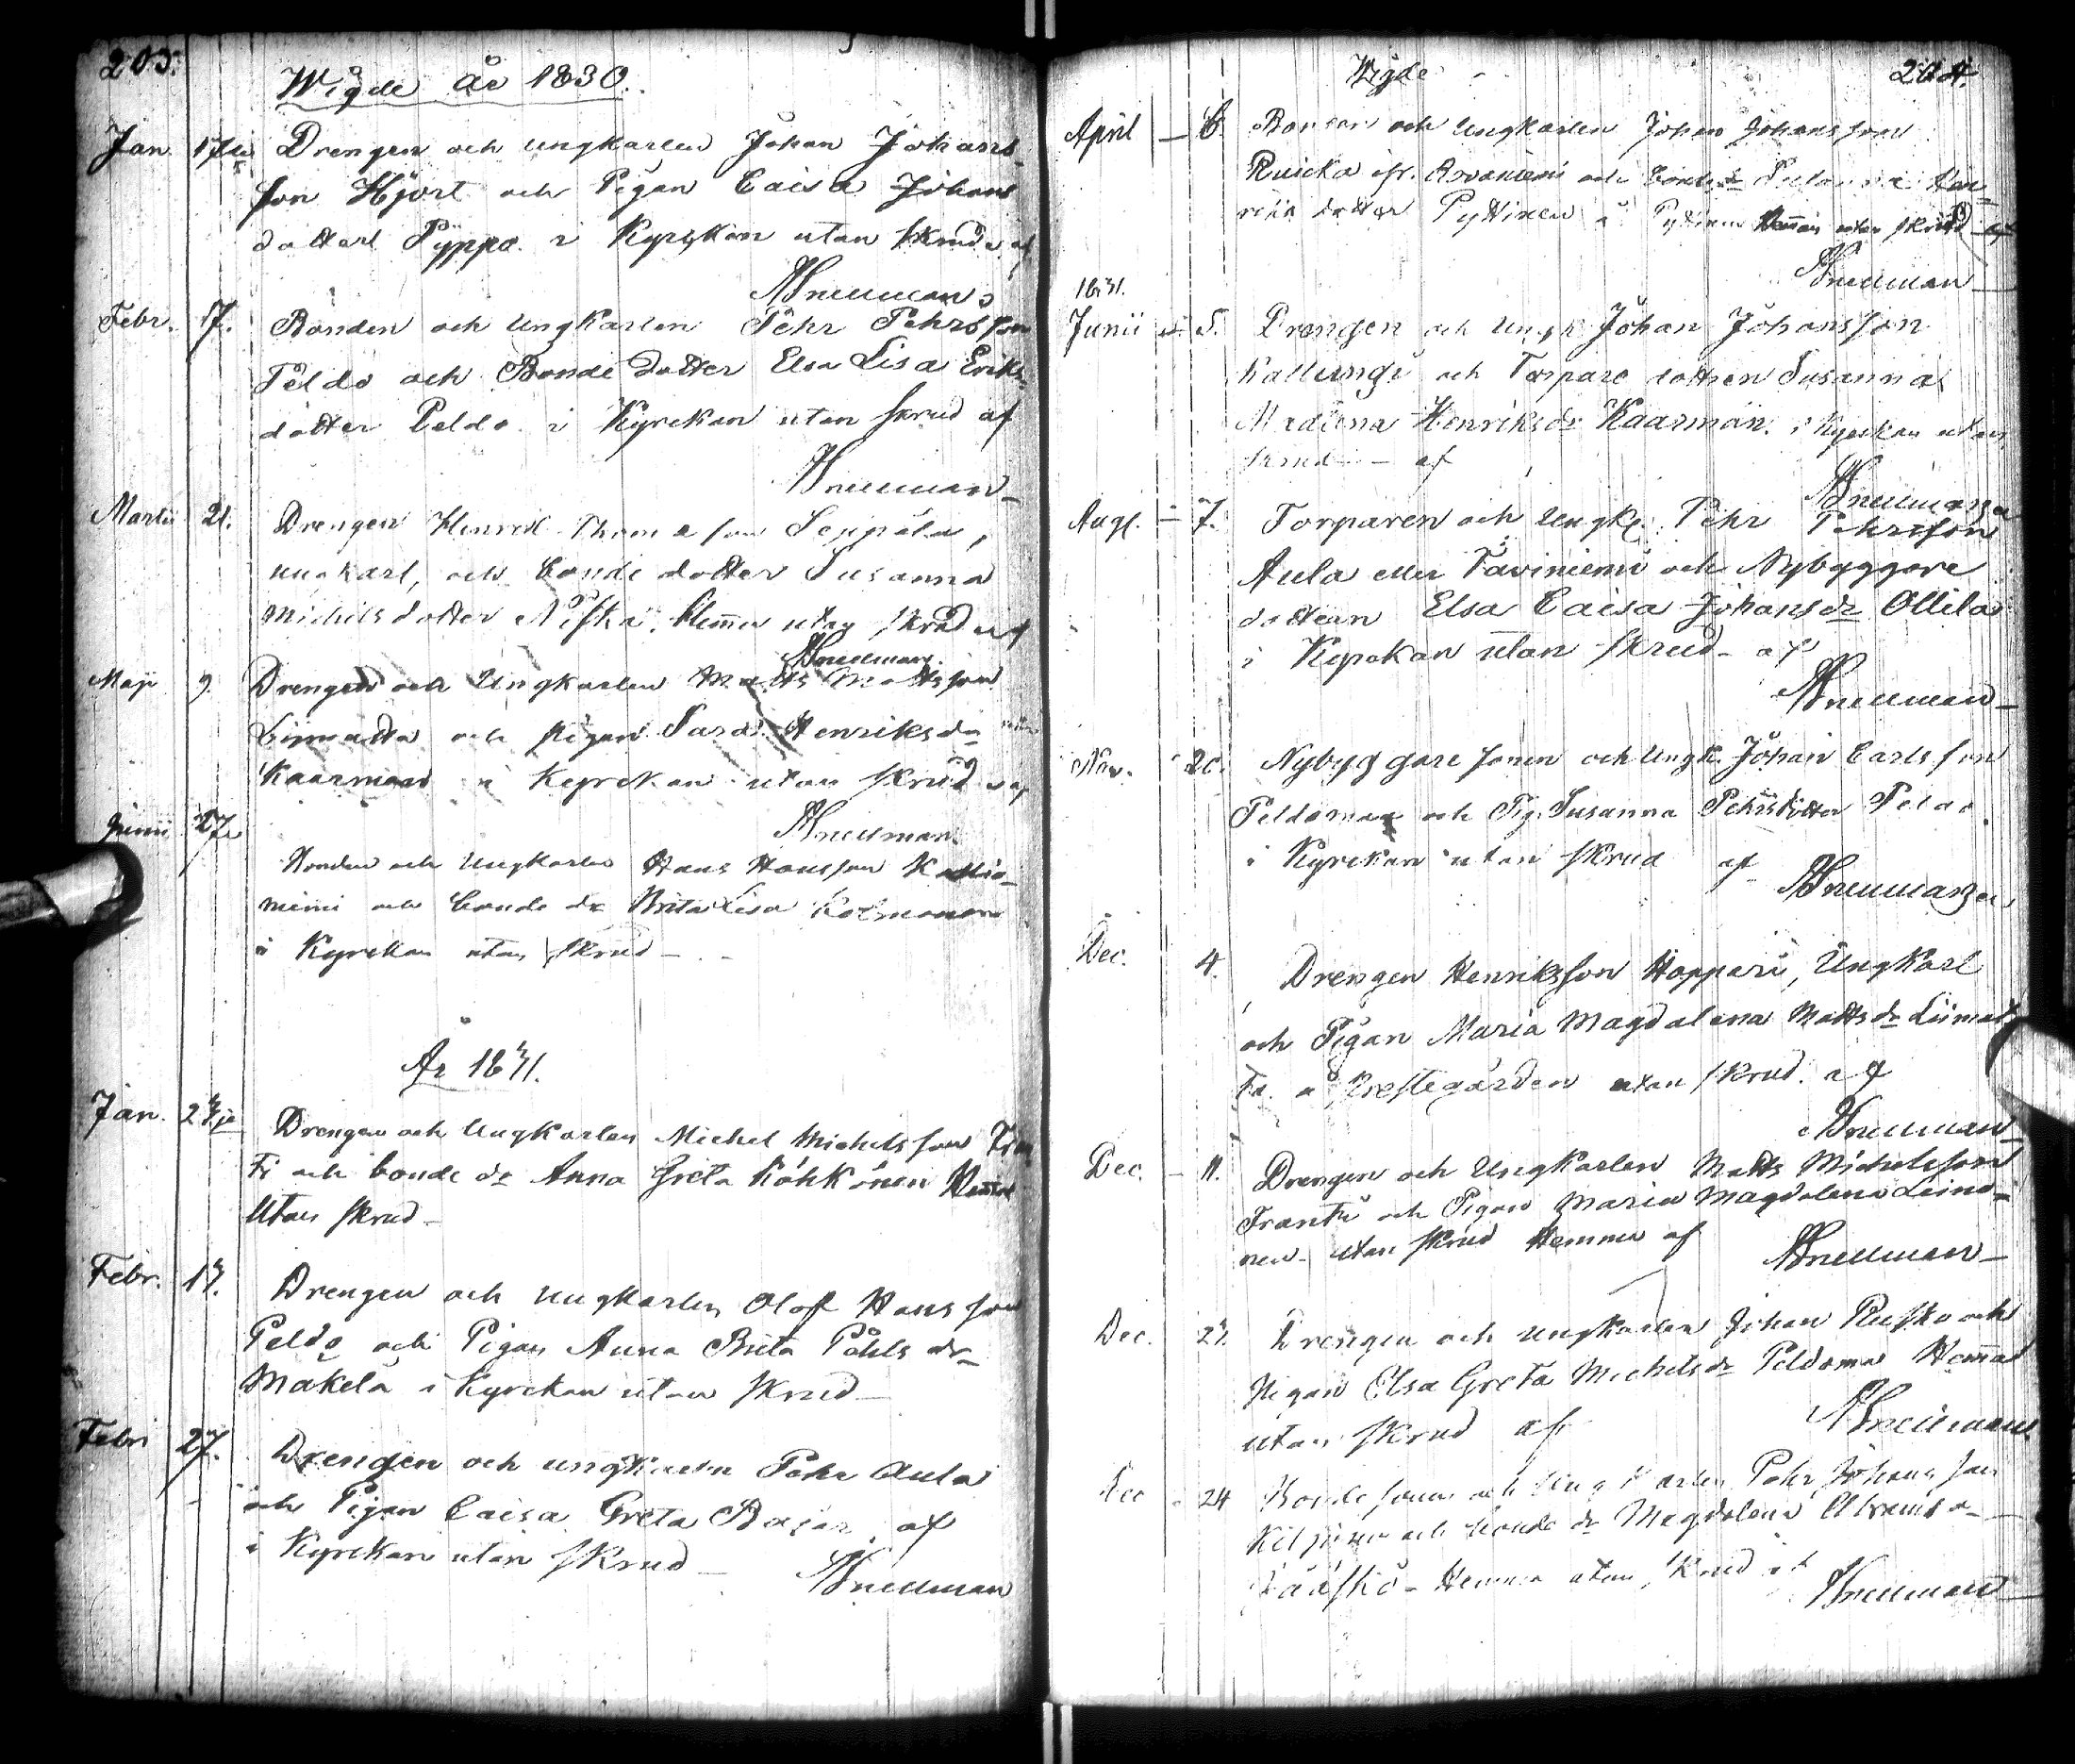 203.
Wigde år 1830.
Jan. 17de Drengen och Ungkarlen Johan Johans-
son Hjort och Pigan Caisa Johans
dotter Pyppo i Kyrckan utan skrud af
NSnellman
Febr. 17. Bonden och Ungkarlen Pehr Pehrsson
Peldo och Bonde dotter Elsa Lisa Eriks-
dotter Peldo i Kyrckan utan skrud af
NSnellman
Martii 21. Drengen Henric Thomasson Seppälä,
ungkarl, och bonde dotter Susanna
Michelsdotter Niska, hemma utan skrud af
NSnellman.
Maji 9. Drengen och Ungkarlen Matts Mattsson
Liimatta och pigan Sara Henriksdr
Kaarman i Kyrckan utan skrud af
NSnellman.
Junii 27de
Bonden och Ungkarlen Hans Hansson Kallio-
niemi och bonde dr Brita Lisa Kolmonen
i Kyrckan utan skrud
År 1831.
Jan. 23je Drengen och Ungkarlen Michel Michelsson
och bonde dr Anna Greta Köhkönen Hemma
utan skrud
Febr. 13. Drengen och ungkarlen Olof Hansson
Peldo och Pigan Anna Brita Påhls dr
Makela i Kyrckan utan skrud
Febr 27. Drengen och ungkarlen Pehr Aula
och Pigan Caisa Greta af
i Kyrckan utan skrud
NSnellman
Wigde 204.
April 6. Bonden och Ungkarlen Johan Johansson
Ruicka ifr. Rovaniemi och bonde dr Susanna
dotter Pyttinen å Pyttinen Hemman utan skrud af
NSnellman
1831.
Junii 5. Drengen och Ungk Johan Johansson
Kallunge och Torpare dottren Susanna
Henriksdr Kaarman i Kyrckan utan
skrud af
NSnellman
Aug. 7. Torparen och Ungk. Pehr Pehrsson
Aula eller Taviniemi och Nybyggare
dottren Elsa Caisa Johansdr Ollila
i Kyrckan utan skrud af
NSnellman
Nov. 20. Nybyggare sonen och Ungk. Johan Carlsson
Peldomaa och Pig. Susanna Pehrsdotter Peldo
i Kyrckan utan skrud af
NSnellman
Dec. 4. Drengen Henriksson Hoppari, Ungkarl
och Pigan Maria Magdalena Mattsdr Liimat-
ta å Prestegården utan skrud af
NSnellman
Dec. 11. Drengen och Ungkarlen Matts Michelsson
Frantti och Pigan Maria Magdalena Leino-
nen utan skrud Hemma af
NSnellman
Dec. 27. Drengen och ungkarlen Johan Rusko och
Pigan Elsa Greta Michelsdr Peldomaa Hemma
utan skrud af
NSnellman
Dec 24 Bonde sonen och Ungkarlen Pehr Johansson
och bonde dr Magdalena
Hemma utan skrud af
NSnellman